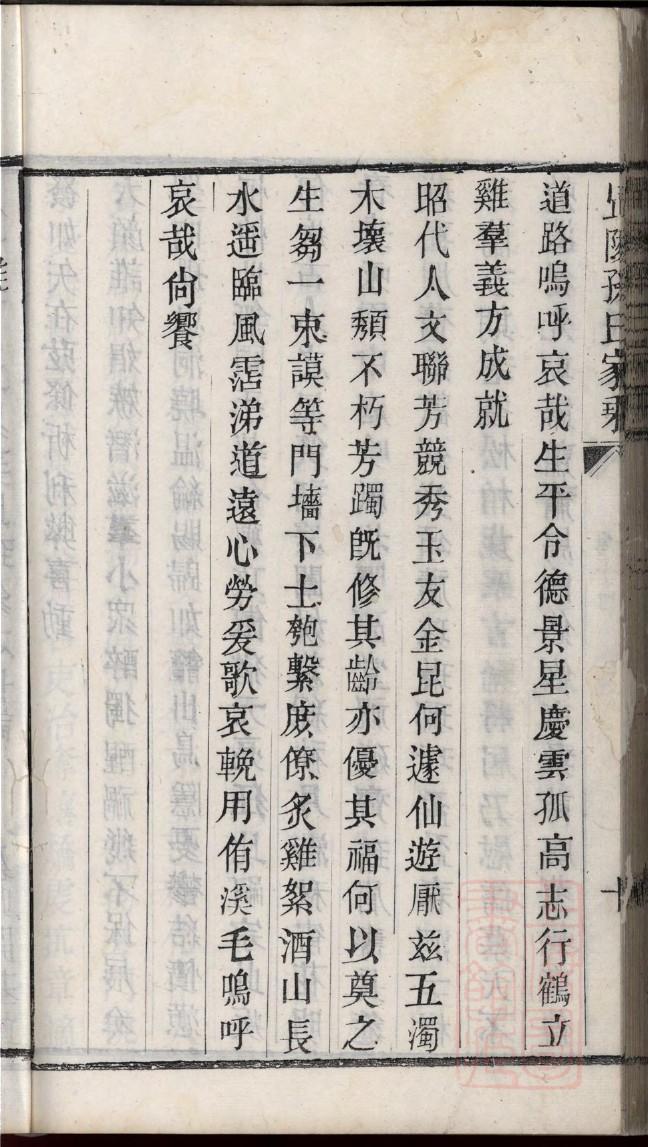 毘陵孫氏家乘
十
道路嗚呼哀哉生平令德景星慶雲孤高志行鶴立
雞羣義方成就
昭代人文聯芳競秀玉友金昆何遽仙遊厭茲五濁
木壞山頹不朽芳躅旣修其齡亦優其福何以奠之
生芻一束謨等門墻下士匏繫庶僚炙雞絮酒山長
水遥臨風霑涕道遠心勞爰歌哀輓用侑溪毛嗚呼
哀哉尙饗